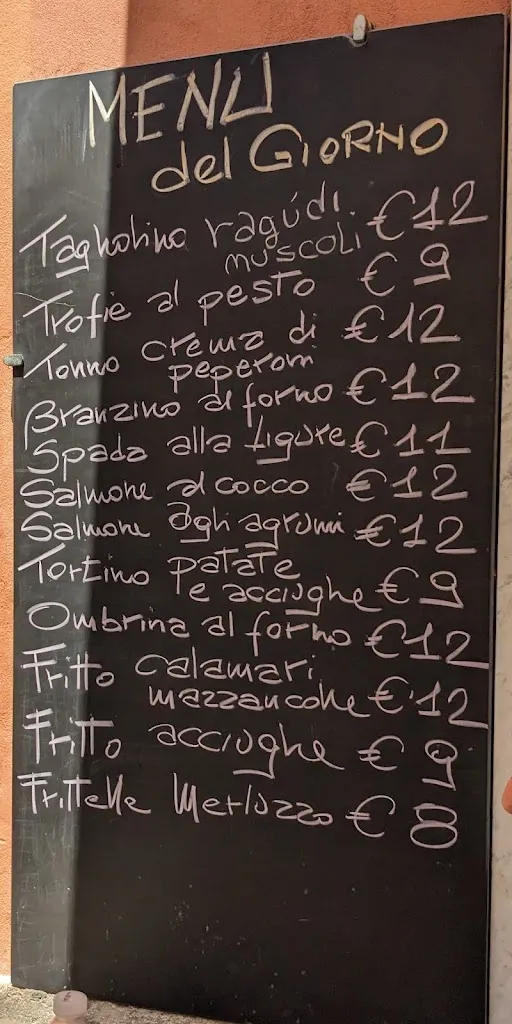 MENU
del GIORNO
Tagliolino ragú di € 12
muscoli
Trofie al pesto € 9
Tonno crema di € 12
peperoni
Branzino al forno € 12
Spada alla ligure € 11
Salmone al cocco € 12
Salmone agli agrumi € 12
Tortino patate
e acciughe € 9
Ombrina al forno € 12
Fritto calamari
mazzancolle € 12
Fritto acciughe € 9
Frittelle Merluzzo € 8